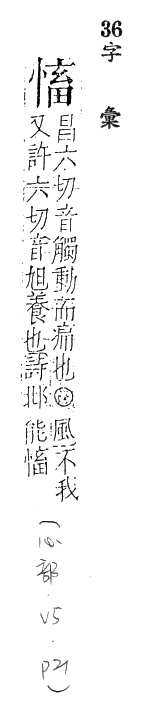 36字 彙
慉
昌六切音觸動而痛也
又許六切音旭養也詩邶
風不我
能慉
(心部.V5.P21)